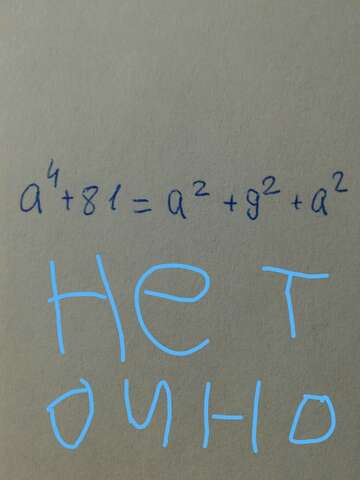 a⁴+81=a²+9²+a²
нет
очно